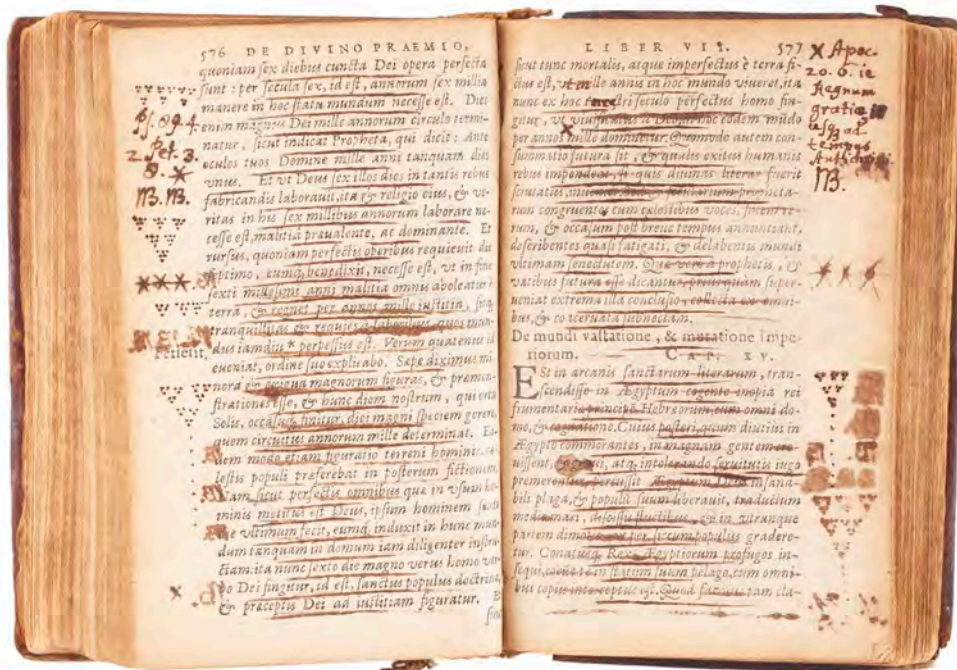 576 DE DIVINO PRAEMIO,
quoniam sex diebus cuncta Dei opera perfecta
sunt: per secula sex, id est, annorum sex millia
manere in hoc statu mundum necesse est. Dies
enim magnus Dei mille annorum circulo termi-
natur, sicut indicat Propheta, qui dicit: Ante
oculos tuos Domine mille anni tanquam dies
vnus. Et vt Deus sex illos dies in tantis rebus
fabricandis laborauit, ita & religio eius, & ve-
ritas in his sex millibus annorum laborare ne-
cesse est, malitia praeualente, ac dominante. Et
rursus, quoniam perfectis operibus requieuit die
septimo, eumq; benedixit, necesse est, vt in fine
sexti millesimi anni malitia omnis aboleatur
terra, & regnet per annos mille iustitia, sitq;
tranquillitas & requies à laboribus, quos mun-
dus iamdiu * perpessus est. Verum quatenus id
eueniat, ordine suo explicabo. Saepe diximus mi-
nora & exigua magnorum figuras, & praemon-
strationes esse, & hunc diem nostrum, qui ortu
Solis, occasuq; finitur, diei magni speciem gerere,
quem circuitus annorum mille determinat. Eo-
dem modo etiam figuratio terreni hominis cae-
lestis populi praeferebat in posterum fictionem.
Nam sicut perfectis omnibus quae in vsum ho-
minis molitus est Deus, ipsum hominem sexto
die vltimum fecit, eumq; induxit in hunc mun-
dum tanquam in domum iam diligenter instru-
ctam: ita nunc sexto die magno verus homo ver-
bo Dei fingitur, id est, sanctus populus doctrina,
& praeceptis Dei ad iustitiam figuratur. Et
sicut
2. Pet. 3.
8. *
NB. NB.
perierit,
x
LIBER VII. 577
sicut tunc mortalis, atque imperfectus è terra fi-
ctus est, vt mille annis in hoc mundo viueret, ita
nunc ex hoc terrestri seculo perfectus homo fin-
gitur, vt viuificatus à Deo in hoc eodem mūdo
per annos mille dominetur. Quomodo autem con-
summatio futura sit, & qualis exitus humanis
rebus impendeat, si quis diuinas literas fuerit
scrutatus, inueniet. Sed & secularium propheta-
rum congruentes cum coelestibus voces, finem re-
rum, & occasum post breue tempus annuntiant,
describentes quasi fatigati, & delabentis mundi
vltimam senectutem. Quae vero a prophetis, &
vatibus futura esse dicantur, priusquam super-
ueniat extrema illa conclusio, collecta ex omni-
bus, & coaceruata subnectam.
De mundi vastatione, & mutatione impe-
riorum. CAP. XV.
ESt in arcanis sanctarum literarum, tran-
scendisse in Ægyptum cogente inopia rei
frumentariae principē Hebraeorum cum omni do-
mo, & cognatione. Cuius posteri, quum diutius in
Ægypto commorantes, in magnam gentem cre-
uissent, & graui, atq; intolerando seruitutis iugo
premerentur, percussit Ægyptum Deus insana-
bili plaga, & populū suum liberauit, traductum
medio mari, discissis fluctibus, & in vtranque
partem dimotis, vt per siccum populus gradere-
tur. Conatusq; Rex Ægyptiorum profugos in-
sequi, coëunte in statum suum pelago, cum omni-
bus copiis interceptus est. Quod facinus tam cla-
x Apoc.
20. 6. ie
Regnum
gratiae
usq; ad
tempus
Antichristi
NB.